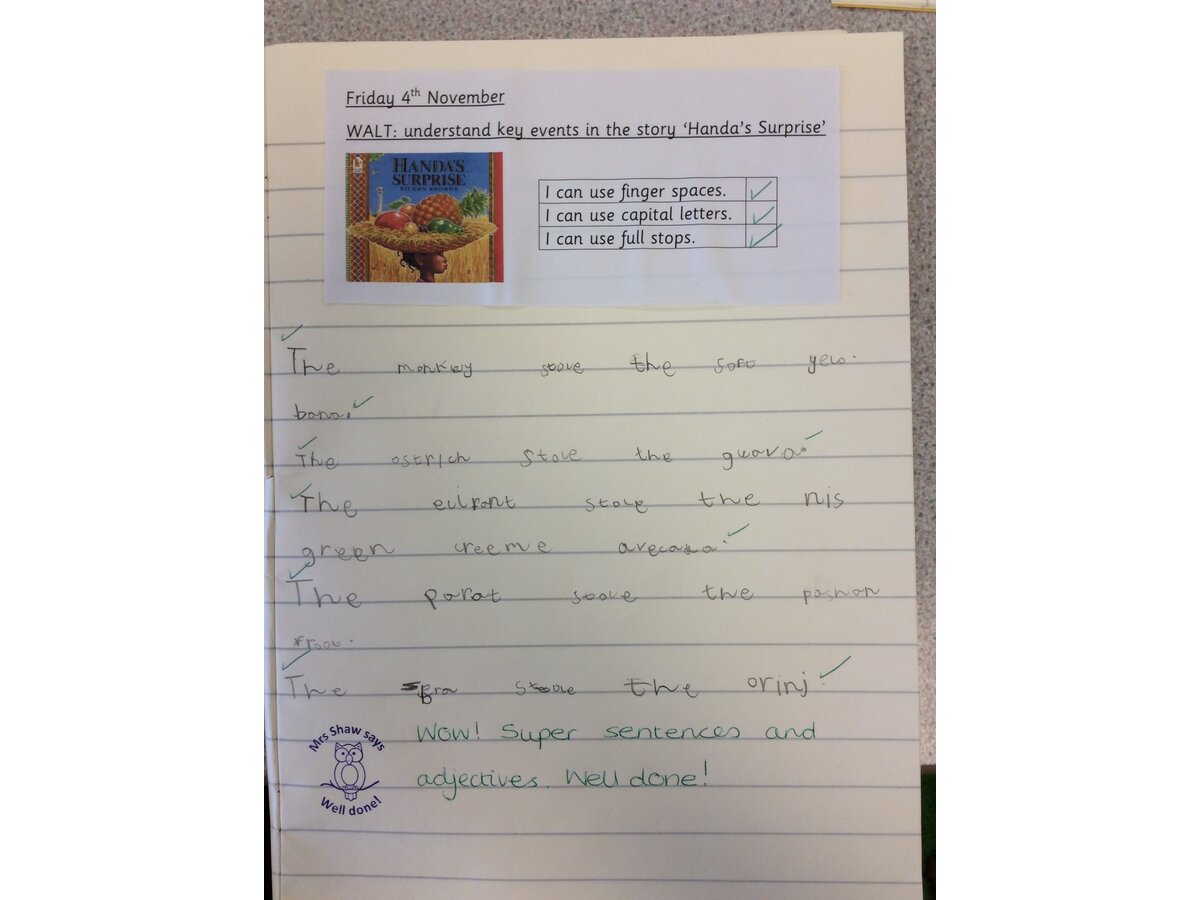 Friday 4th November
WALT: understand key events in the story ‘Handa's Surprise’
HANDA'S
SURPRISE
EILEEN BROWNE
I can use finger spaces. ✓
I can use capital letters. ✓
I can use full stops. ✓
The monkey stole the soft yelo
bana.
The ostrich stole the guava.
The eilfant stole the nis
green creeme avecada.
The parat stole the pashon
froot.
The stole the orinj.
Mrs Shaw says
Well done!
Wow! Super sentences and
adjectives. Well done!